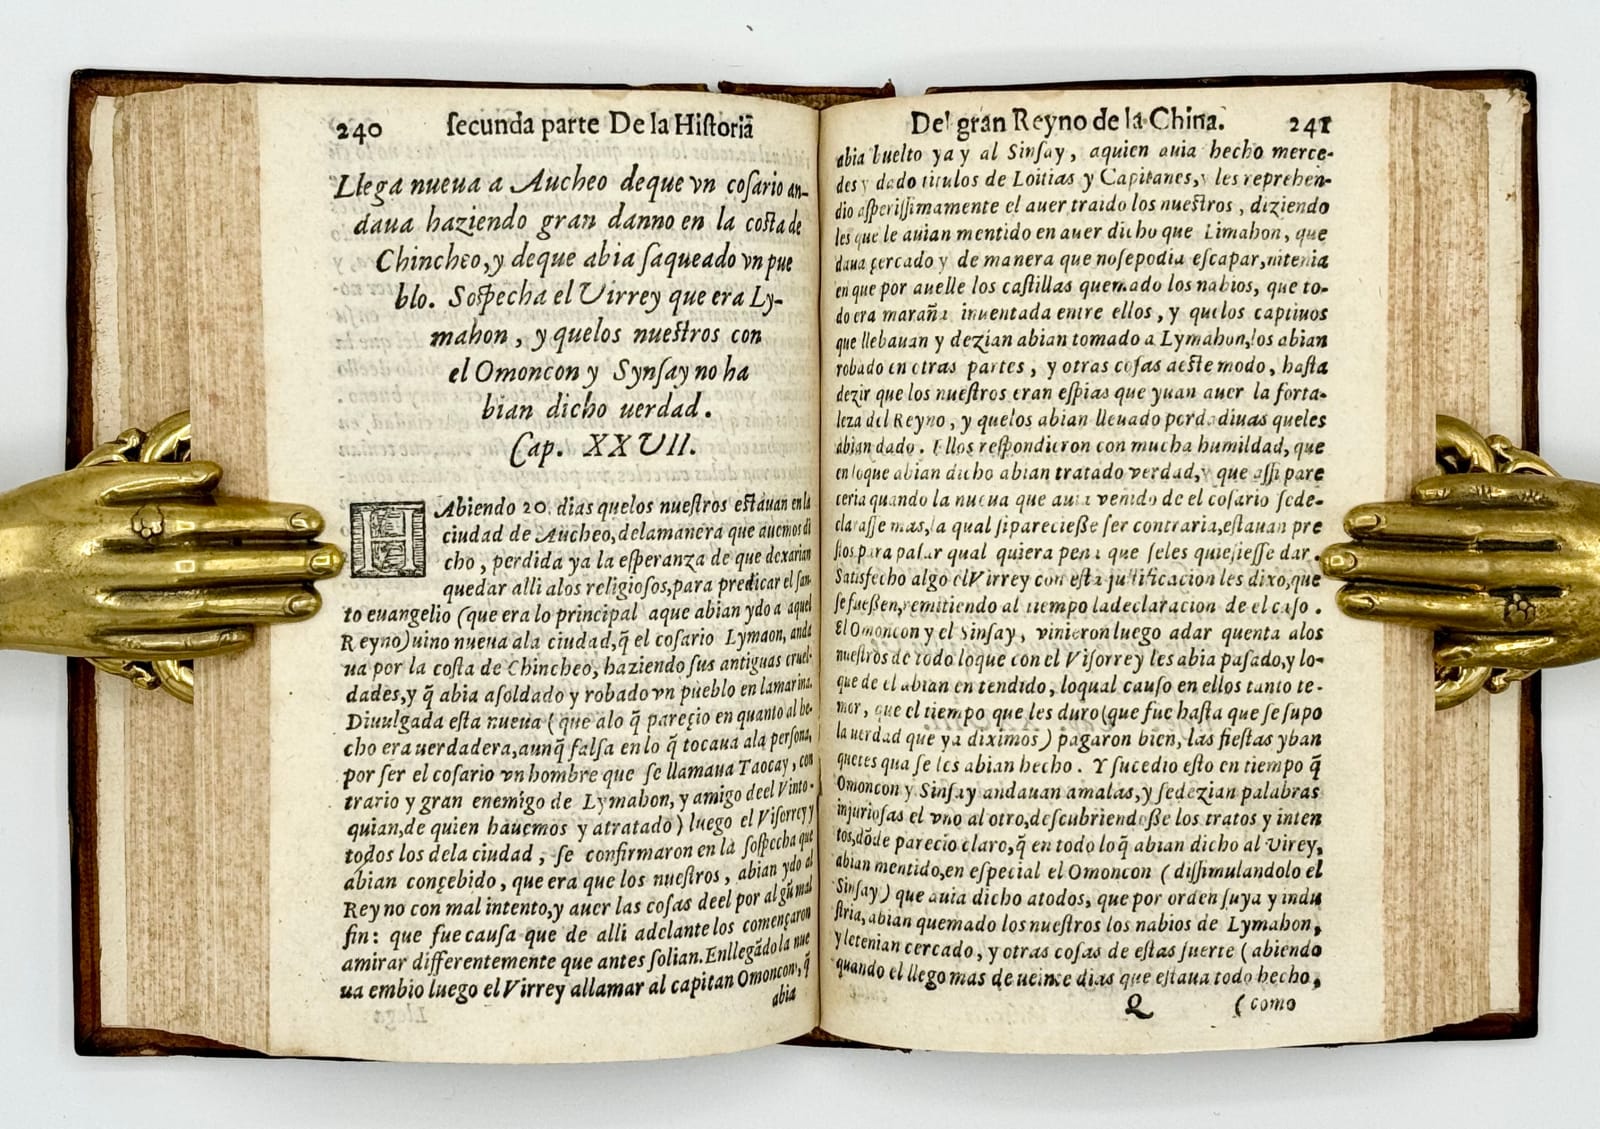 240 secunda parte De la Historiā
Llega nueua a Aucheo deque vn cosario an-
daua haziendo gran danno en la costa de
Chincheo, y deque abia saqueado vn pue
blo. Sospecha el Virrey que era Ly-
mahon, y quelos nuestros con
el Omoncon y Synsay no ha
bian dicho uerdad.
Cap. XXVII.
HAbiendo 20. dias quelos nuestros estauan en la
ciudad de Aucheo, delamanera que auemos di
cho, perdida ya la esperanza de que dexarian
quedar alli alos religiosos, para predicar el san-
to euangelio (que era lo principal aque abian ydo a aquel
Reyno) uino nueua ala ciudad, q̃ el cosario Lymaon, anda
ua por la costa de Chincheo, haziendo sus antiguas cruel-
dades, y q̃ abia asoldado y robado vn pueblo en lamarina.
Diuulgada esta nueua (que alo q̃ pareçio en quanto al he-
cho era uerdadera, aunq̃ falsa en lo q̃ tocaua ala persona,
por ser el cosario vn hombre que se llamaua Taocay, con
trario y gran enemigo de Lymahon, y amigo deel Vinto-
quian, de quien hauemos y atratado) luego el Visorrey y
todos los dela ciudad, se confirmaron en la sospecha que
abian conçebido, que era que los nuestros, abian ydo al
Reyno con mal intento, y auer las cosas deel por algũ mal
fin: que fue causa que de alli adelante los començaron
amirar differentemente que antes solian. Enllegãdo la nue
ua embio luego el Virrey allamar al capitan Omoncon, q̃
abia
Del gran Reyno de la China. 241
abia buelto ya y al Sinsay, aquien auia hecho merce-
des y dado titulos de Loitias y Capitanes, y les reprehen-
dio asperissimamente el auer traido los nuestros, diziendo
les que le auian mentido en auer dicho que Limahon, que
daua çercado y de manera que nosepodia escapar, nitenia
en que por auelle los castillas quemado los nabios, que to-
do era maraña inuentada entre ellos, y quelos captiuos
que llebauan y dezian abian tomado a Lymahon, los abian
robado en otras partes, y otras cosas aeste modo, hasta
dezir que los nuestros eran espias que yuan auer la forta-
leza del Reyno, y quelos abian lleuado por dadiuas queles
abian dado. Ellos respondieron con mucha humildad, que
en loque abian dicho abian tratado verdad, y que assi pare
ceria quando la nueua que auia venido de el cosario sede-
clarasse mas, la qual si parecieße ser contraria, estauan pre
stos para pasar qual quiera pena que seles quisiesse dar.
Satisfecho algo el Virrey con esta justificacion les dixo, que
se fueßen, remitiendo al tiempo ladeclaracion de el caso.
El Omoncon y el Sinsay, vinieron luego adar quenta alos
nuestros de todo loque con el Visorrey les abia pasado, y lo-
que de el abian en tendido, loqual causo en ellos tanto te-
mor, que el tiempo que les duro (que fue hasta que se supo
la uerdad que ya diximos) pagaron bien, las fiestas yban
quetes qua se les abian hecho. Y sucedio esto en tiempo q̃
Omoncon y Sinsay andauan amalas, y sedezian palabras
injuriosas el vno al otro, descubriendoße los tratos y inten
tos, dõde parecio claro, q̃ en todo loq̃ abian dicho al Virey,
abian mentido, en especial el Omoncon (dissimulandolo el
Sinsay) que auia dicho atodos, que por orden suya y indu
stria, abian quemado los nuestros los nabios de Lymahon,
y letenian cercado, y otras cosas de estas suerte (abiendo
quando el llego mas de ueinte dias que estaua todo hecho,
Q (como